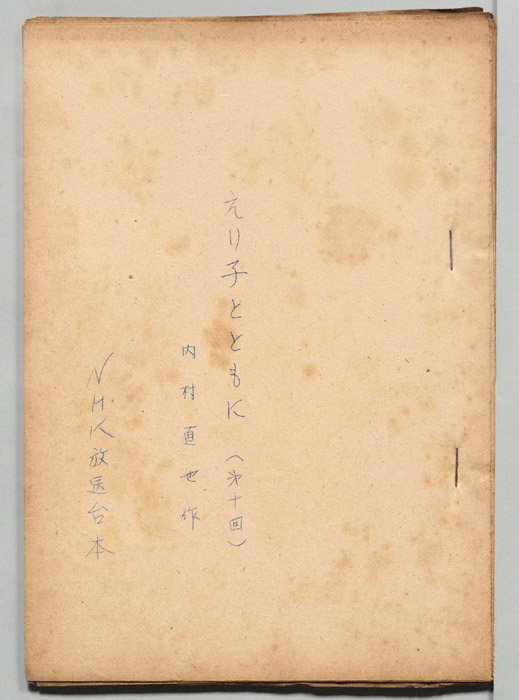 えり子とともに （第十回）
内村直也 作
NHK放送台本